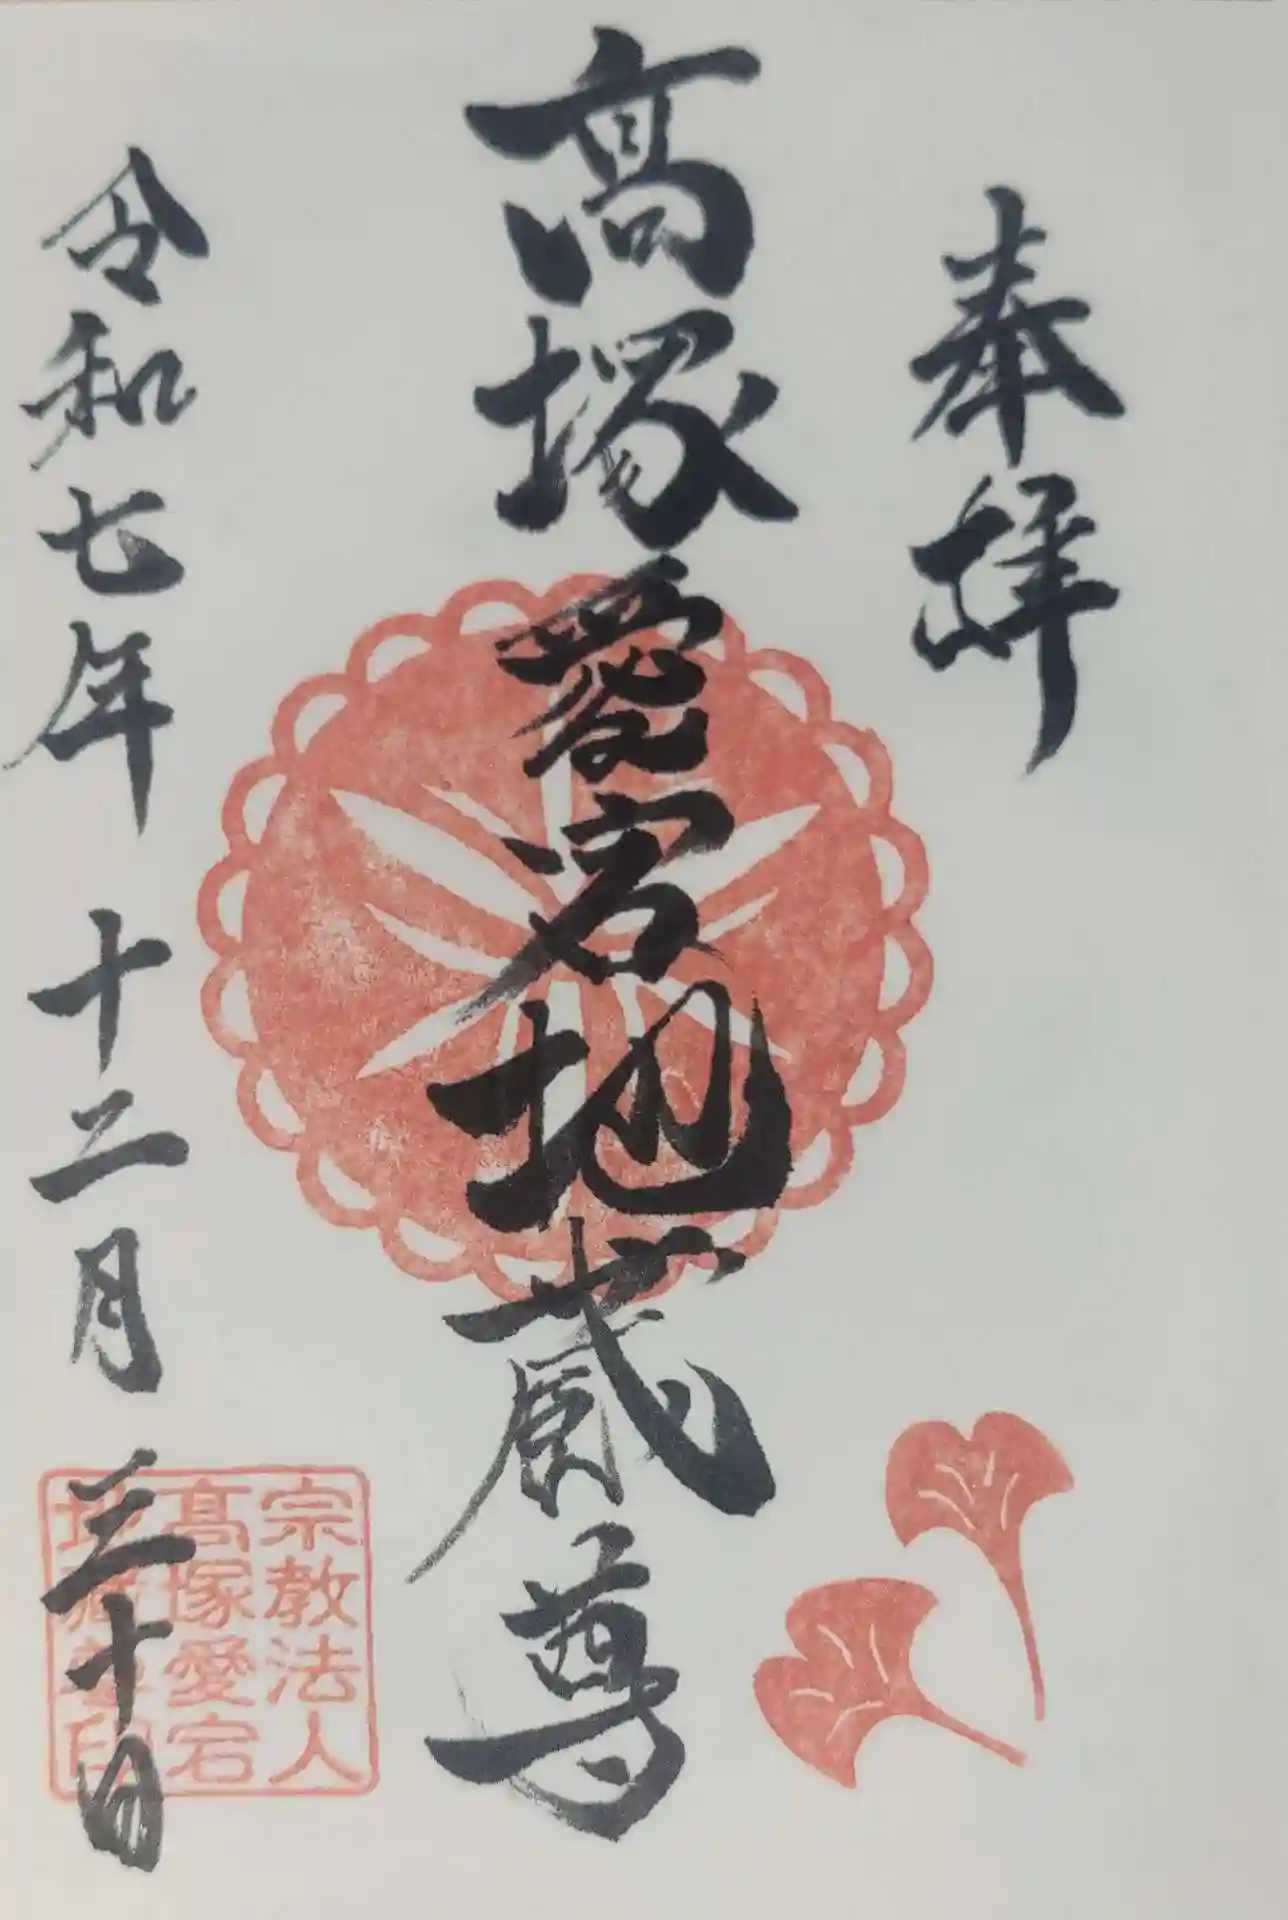 奉拝
高塚愛宕地蔵尊
令和七年 十二月三十日
宗教法人
高塚愛宕
地蔵尊印